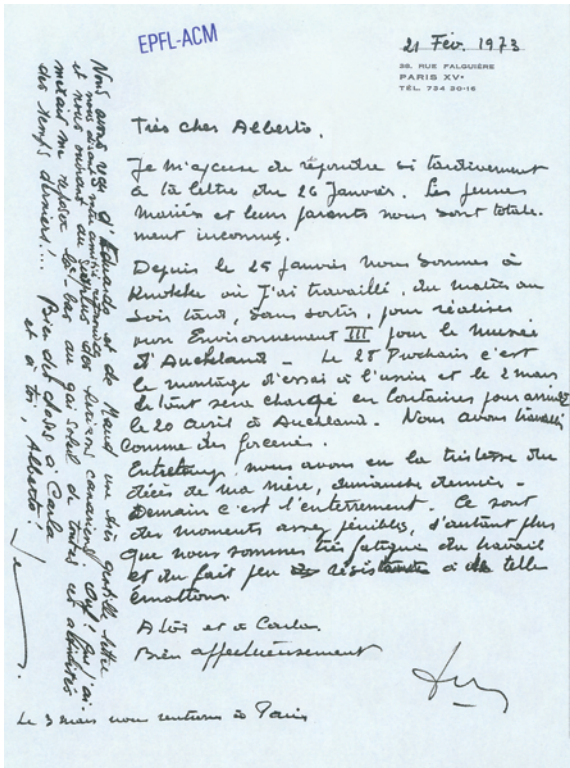 EPFL-ACM
21 Fév. 1973
38. RUE FALGUIÈRE
PARIS XVe
TÉL. 734 20-16
Très cher Alberto,
Je m'excuse de répondre si tardivement
à ta lettre du 26 Janvier. Les jeunes
mariés et leurs parents nous sont totale-
ment inconnus.
Depuis le 25 Janvier nous sommes à
Knokke où j'ai travaillé, du matin au
soir tard, sans sortir, pour réaliser
mon Environnement III pour le Musée
d'Auckland - Le 28 Prochain c'est
le montage d'essai à l'usine et le 2 mars
le tout sera chargé en containers pour arriver
le 20 avril à Auckland. Nous avons travaillé
comme des forcenés.
Entretemps nous avons eu la tristesse du
décès de ma mère, dimanche dernier -
Demain c'est l'enterrement. Ce sont
des moments assez pénibles, d'autant plus
que nous sommes très fatigué du travail
et du fait peu résistants à de telle
émotions.
A toi et à Carla.
Bien affectueusement
Le 3 mars nous rentrons à Paris
Nous avons reçu d'Eduardo et de Maud une très gentille lettre
nous disant votre amitié
et nous ouvrant au plus des horizons canariens, Ouf! Que j'ai-
merais me revoir là-bas au gai soleil de toutes ces
des temps derniers!... Bien des choses à Carla
et à toi, Alberto!